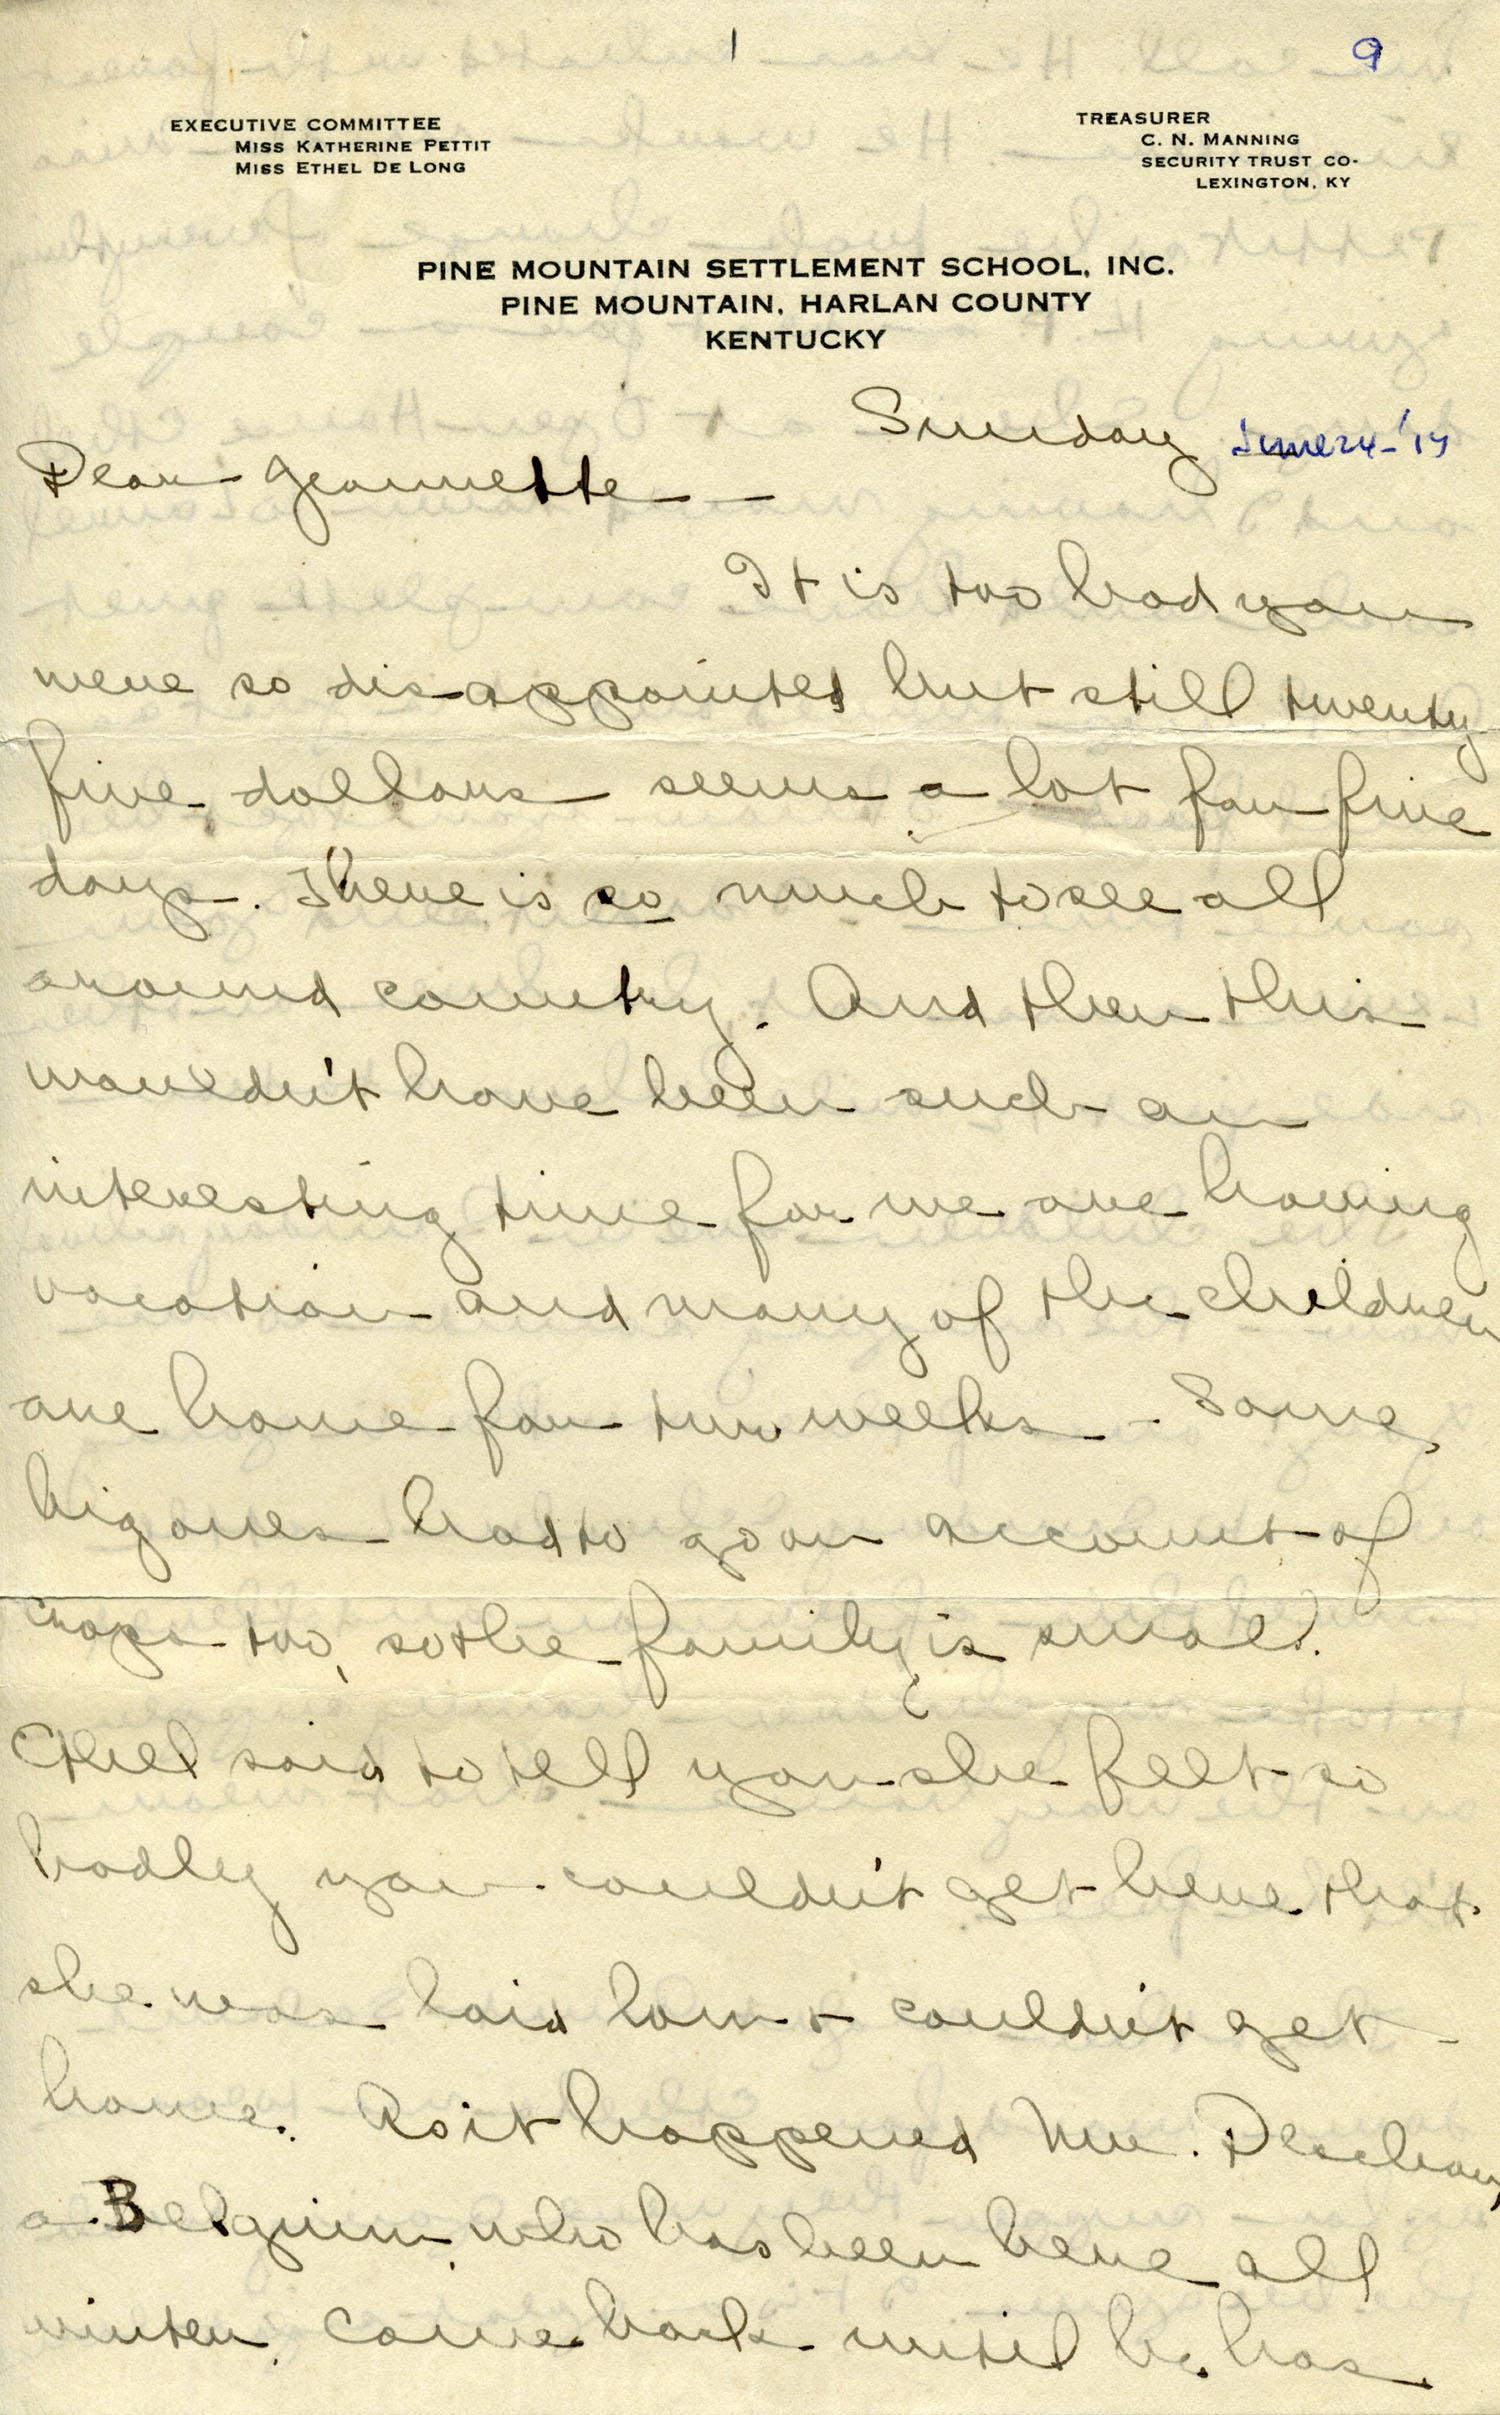 1
9
EXECUTIVE COMMITTEE
MISS KATHERINE PETTIT
MISS ETHEL DE LONG
TREASURER
C. N. MANNING
SECURITY TRUST CO.
LEXINGTON, KY
PINE MOUNTAIN SETTLEMENT SCHOOL, INC.
PINE MOUNTAIN, HARLAN COUNTY
KENTUCKY
Sunday June 24-'17
Dear Jeannette -
It is too bad you
were so disappointed but still twenty
five dollars seems a lot for five
days. There is so much to see all
around country. And then this
wouldn't have been such an
interesting time for we are having
vacation and many of the children
are home for two weeks - Some
big ones had to go on account of
crops too, so the family is small.
Ethel said to tell you she felt so
badly you couldn't get here that
she was laid low + couldn't get
home. As it happened Mr. Deschamp,
a Belguim, who has been here all
winter, came back until he has